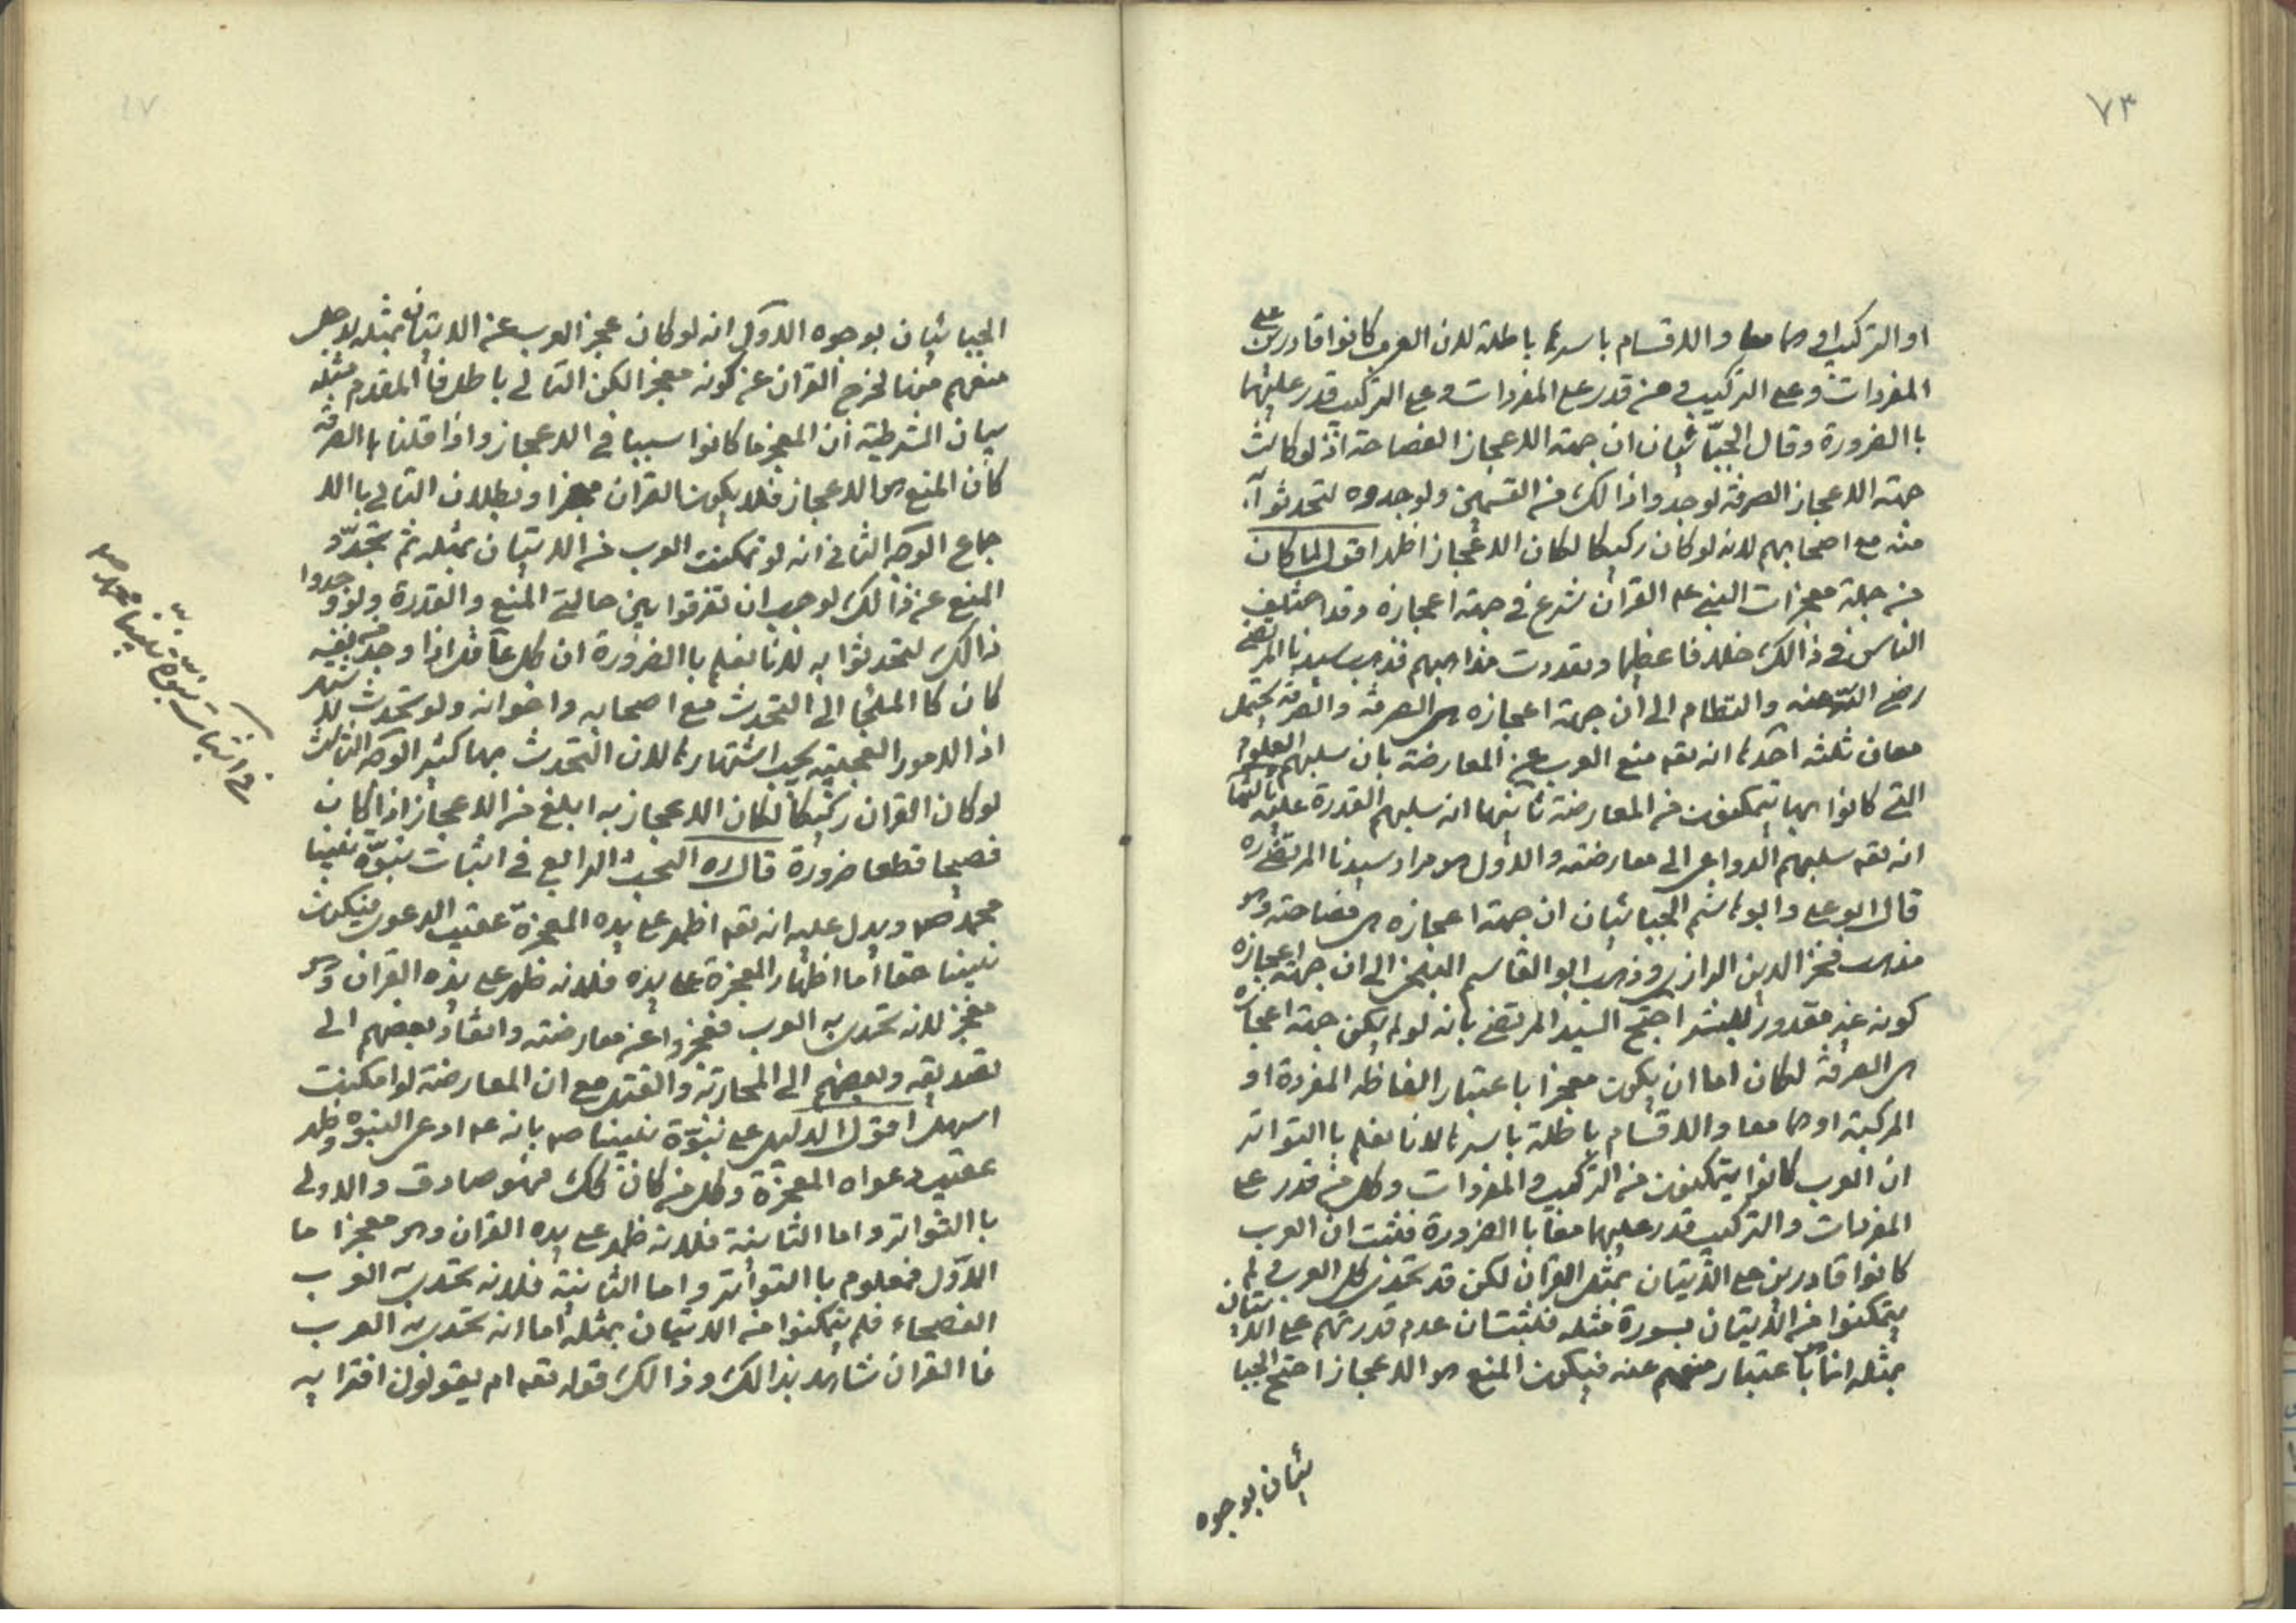 ٧٣
او التركيب او هما معا والاقسام باسرها باطلة لان العرب كانوا قادرين على
المفردات وعلى التركيب ومن قدر على المفردات وعلى التركيب قدر عليهما
باالضرورة وقال الجبّائيان ان جهة الاعجاز الفصاحة اذ لو كانت
جهة الاعجاز الصرفة لوجدوا ذالك من انفسهم ولو وجدوه لتحدثوا
منه مع اصحابهم لانه لو كان ركيكا لكان الاعجاز اظهر اقول لما كان
من جملة معجزات النبي عم القران شرع في جهة اعجازه وقد اختلف
الناس في ذالك خلافا عظيما وتعددت مذاهبهم فذهب سيدنا المرتضى
رضي الله عنه والنظام الى ان جهة اعجازه هى الصرفة والصرفة يحتمل
معان ثلثه احدها انه تعم منع العرب عن المعارضة بان سلبهم العلوم
التي كانوا بها يتمكنون من المعارضة ثانيها انه سلبهم القدرة عليه ثالثها
انه تعم سلبهم الدواعي الى معارضته والاول هو مراد سيدنا المرتضى ره
قال ابو على وابو هاشم الجبائيان ان جهة اعجازه هى فصاحته وهو
مذهب فخر الدين الرازي وذهب ابو القاسم البلخي الى ان جهة اعجازه
كونه غير مقدور للبشر احتج السيد المرتضى بانه لو لم يكن جهة اعجازه
هى الصرفة لكان اما ان يكون معجزا باعتبار الفاظه المفردة او
المركبة او هما معا والاقسام باطلة باسرها لانا نعلم باالتواتر
ان العرب كانوا يتمكنون من التركيب والمفردات وكل من قدر على
المفردات والتركيب قدر عليهما معا باالضرورة فثبت ان العرب
كانوا قادرين على الاتيان بمثل القران لكن قد تحدى كل العرب ولم
يتمكنوا من الاتيان بسورة مثله فثبت ان عدم قدرتهم على الاتيان
بمثله انما باعتبار منعهم عنه فيكون المنع هو الاعجاز احتج الجبا
ئيان بوجوه
الجبائيان بوجوه الاول انه لو كان عجز العرب عن الاتيان بمثله لاجل
منعهم منه لخرج القران عن كونه معجزا لكن التالي باطل فا المقدم مثله
بيان الشرطية ان المعجز ما كانوا سببا في الاعجاز واذا قلنا باالصرفة
كان المنع هو الاعجاز فلا يكون القران معجزا وبطلان التالي باالا
جماع الوجه الثاني انه لو تمكنت العرب من الاتيان بمثله ثم تجدّد
المنع عن ذالك لوجب ان تفرقوا بين حالتي المنع والقدرة ولو وجدوا
ذالك لتحدثوا به لانا نعلم باالضرورة ان كل عاقل اذا وجد من نفسه
كان كا الملجأ الى التحدث مع اصحابه واخوانه ولو تحدث لاشتهر
اذ الامور العجيبة يجب اشتهارها لان التحدث بها كثير الوجه الثالث
لو كان القران ركيكا لكان الاعجاز به ابلغ من الاعجاز اذا كان
فصيحا قطعا ضرورة قال ره البحث الرابع في اثبات نبوّة نبينا
محمد ص ويدل عليه انه تعم اظهر على يده المعجزة عقيب الدعوى فيكون
نبينا حقا أما اظهار المعجزة على يده فلانه ظهر على يده القران وهو
معجز لانه تحدى به العرب فعجزوا عن معارضته وانقاد بعضهم الى
تصديقه وبعضهم الى المحاربة والقتل مع ان المعارضة لو امكنت
اسهل اقول الدليل على نبوّة نبينا ص بانه عم ادعى النبوه وظهر
عقيب دعواه المعجزة وكل من كان كك فهو صادق والاولى
باالتواتر واما الثانية فلانه ظهر على يده القران وهو معجزا ما
الاوّل فمعلوم باالتواتر واما الثانية فلانه تحدى به العرب
الفصحاء فلم يتمكنوا من الاتيان بمثله أما انه تحدى به العرب
فا القران شاهد بذالك وذالك قوله تعم ام يقولون افتراه
في اثبات نبوّة نبينا محمد ص